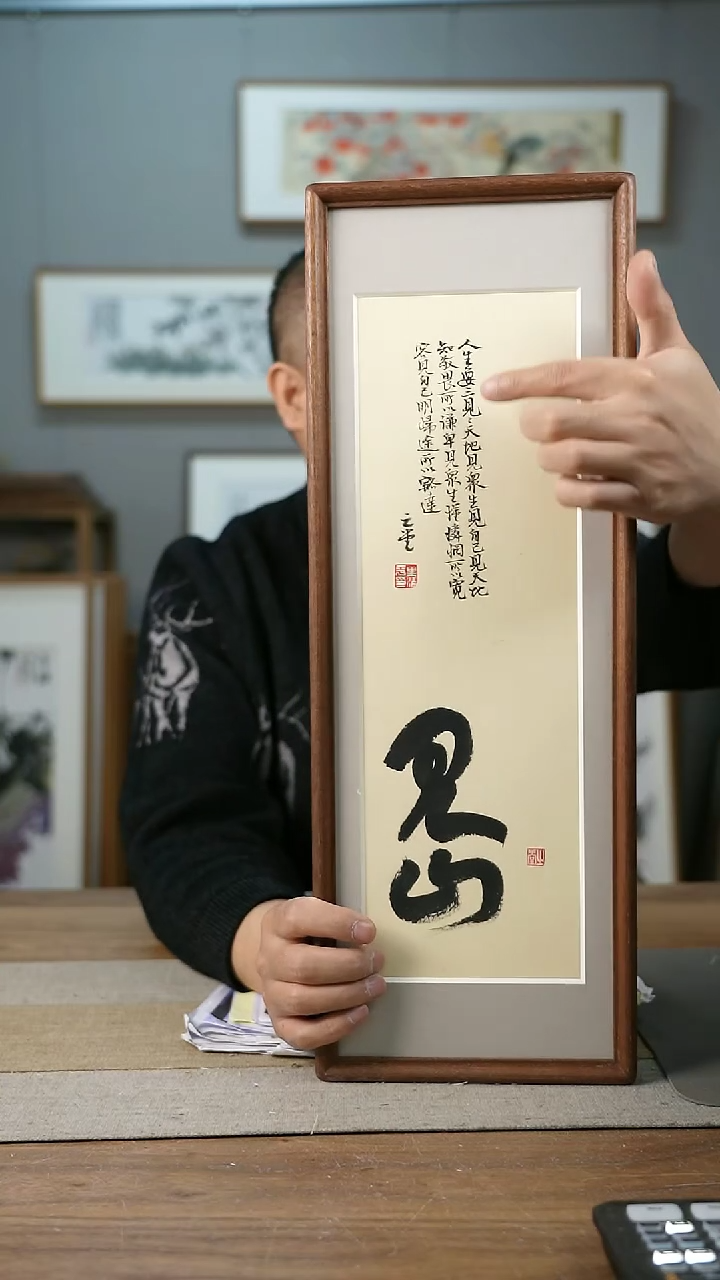 人生要三见：天地见众生见自己见天地
知敬畏所以谦卑见众生懂怜悯所以宽
容见自己明归途所以豁达
见山